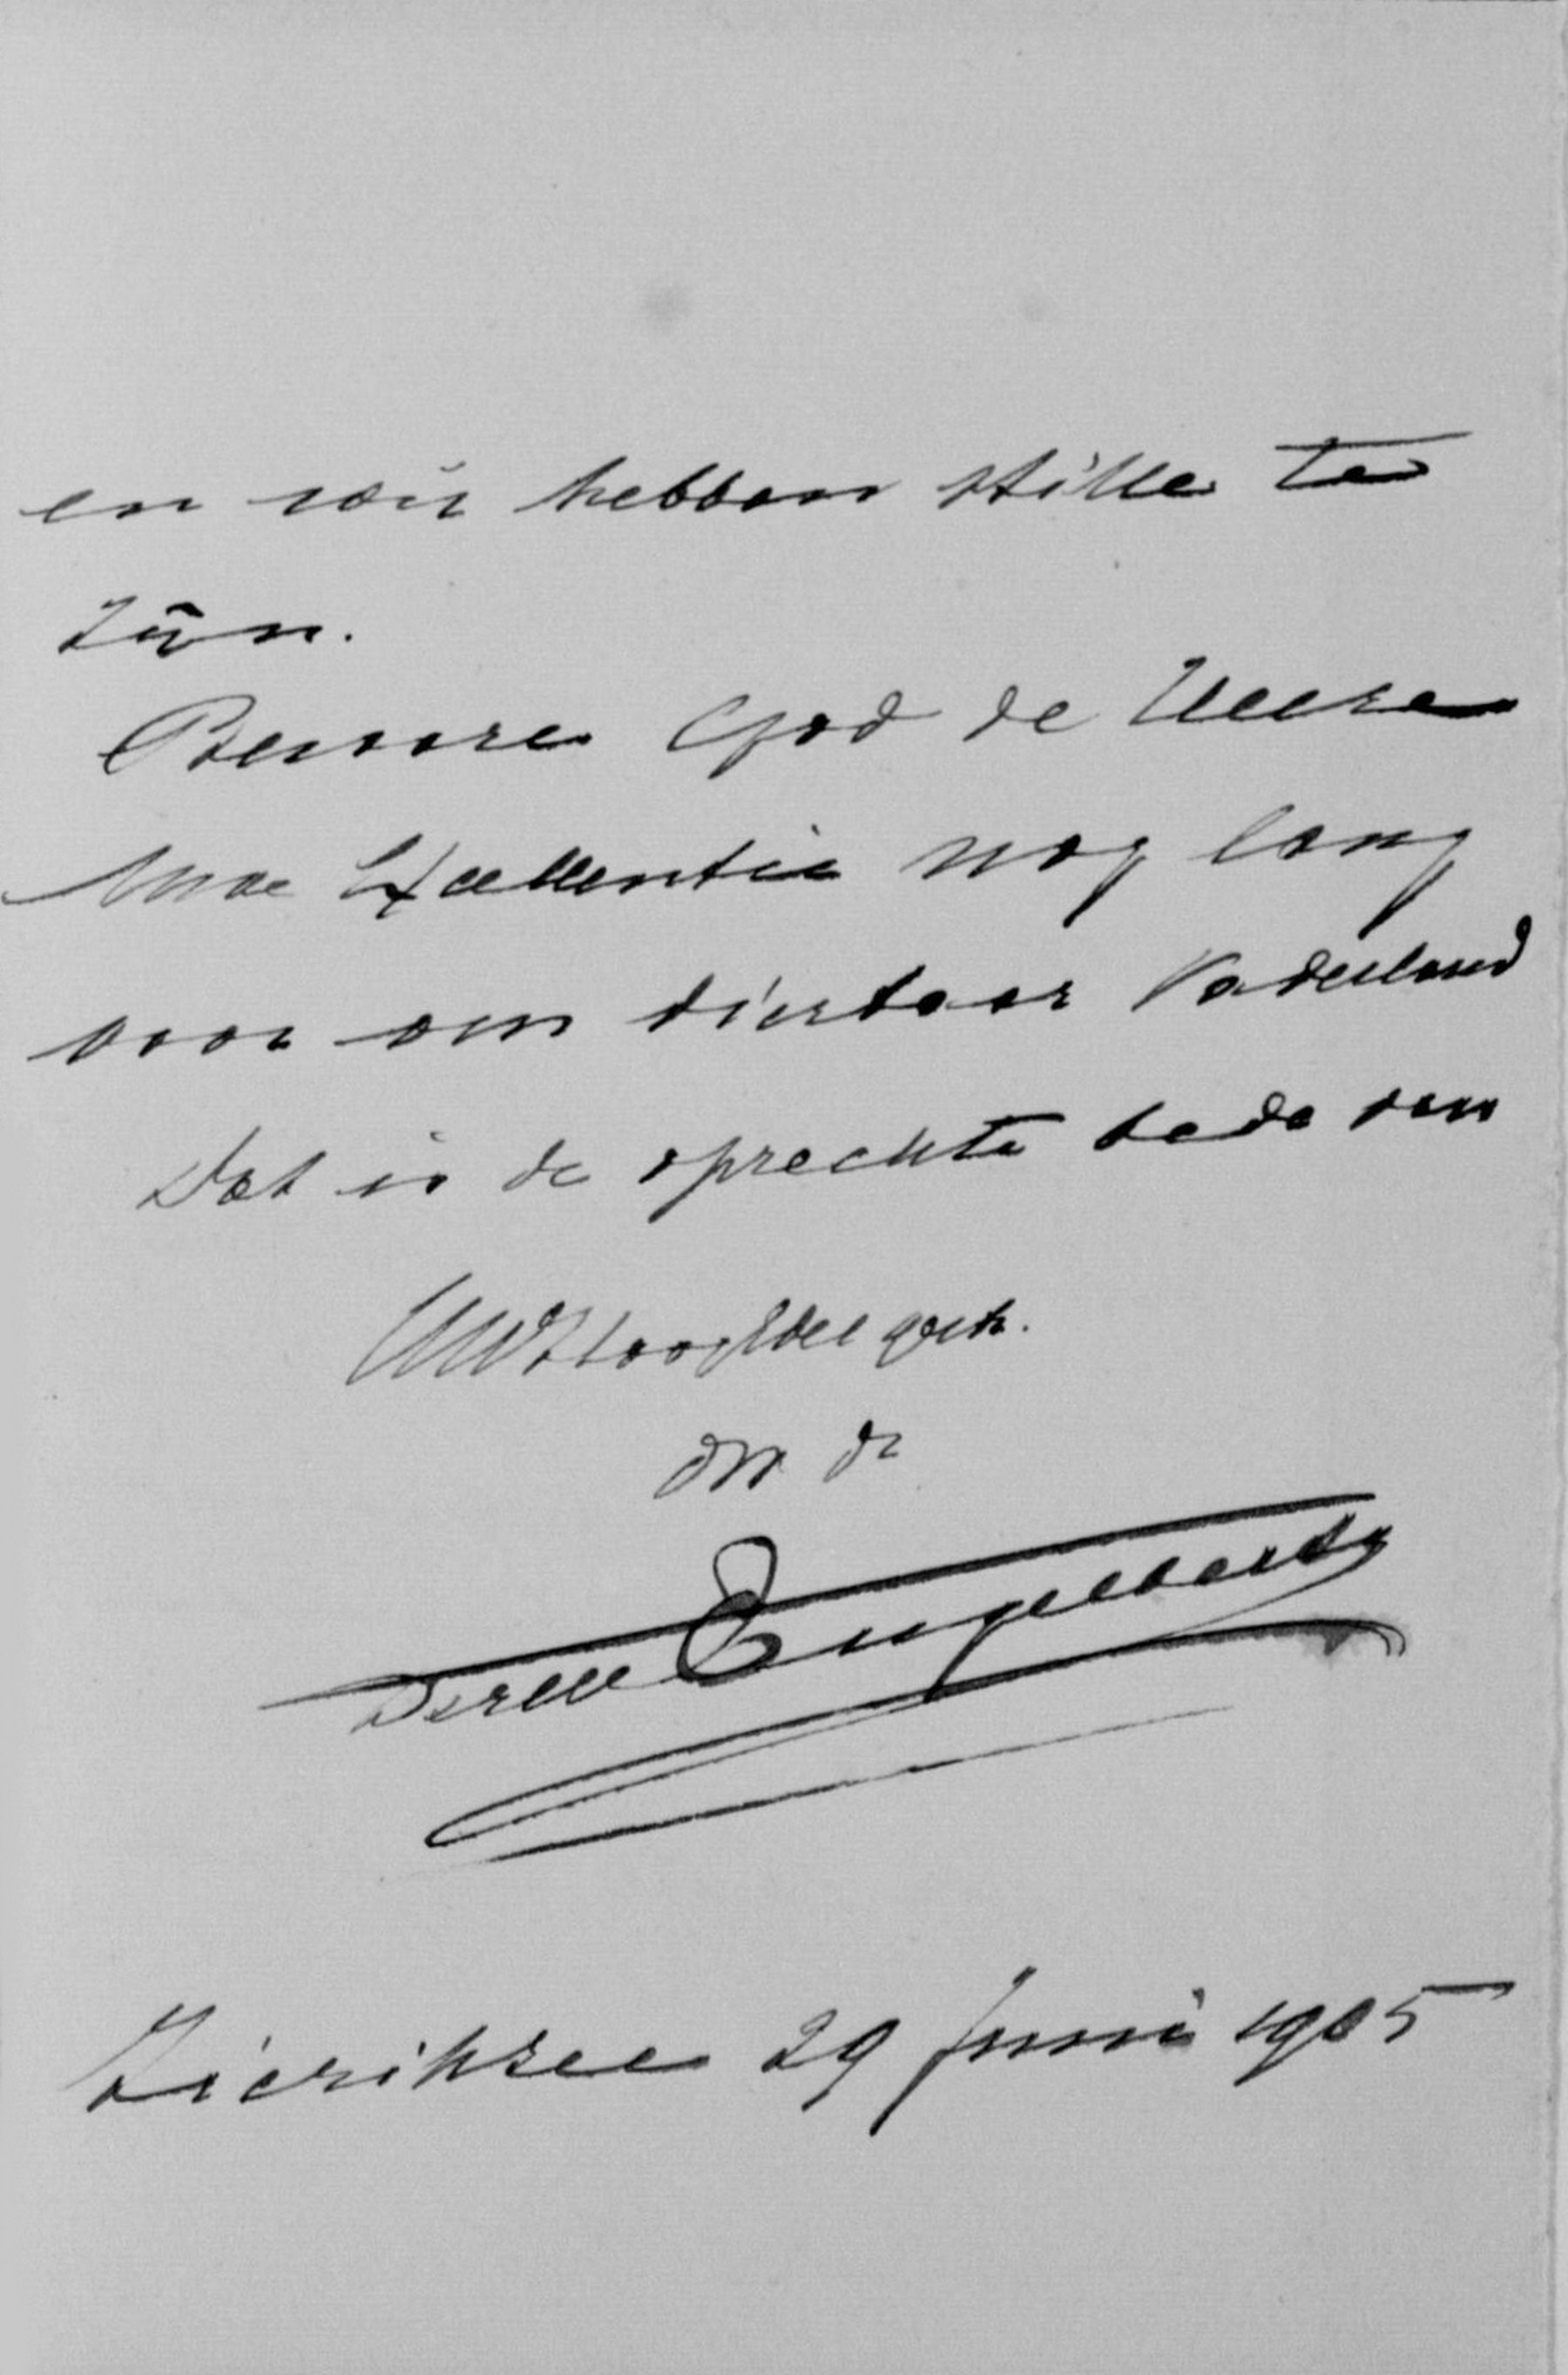 en wij hebben stille te
zijn.
Beware God de Heere
Uwe Excellentie nog lang
voor ons dierbaar Vaderland
Dat is de oprechte bede van
UwHoogEdel gestr.
dw dr
Engelberts
Zierikzee 29 Juni 1905